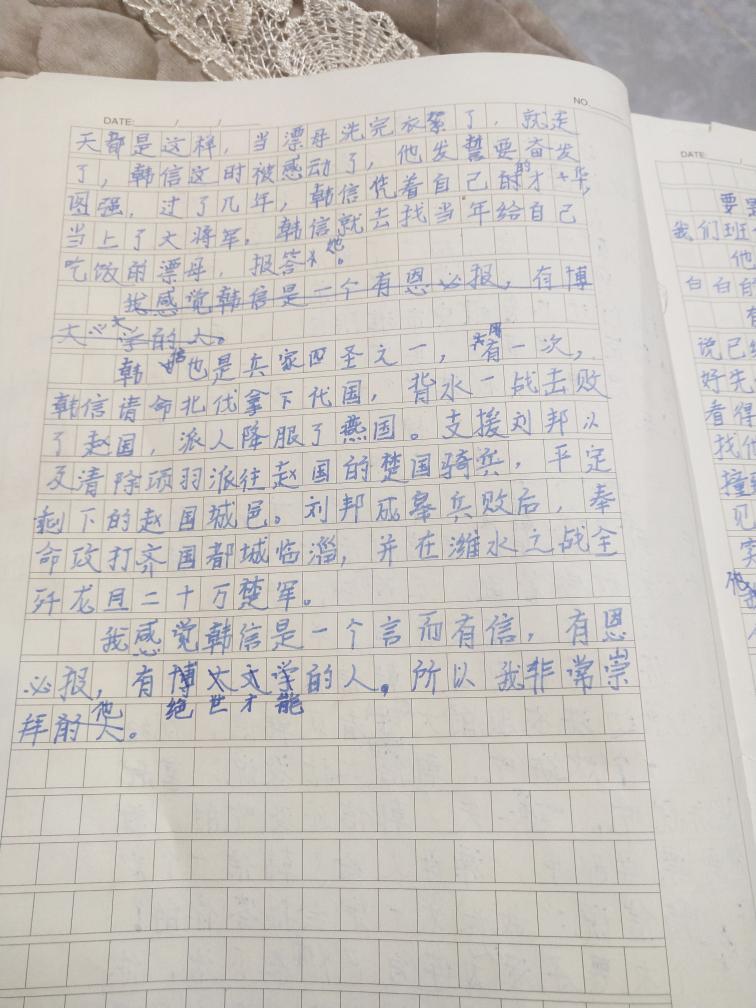 DATE: / /
NO.
天都是这样，当漂母洗完衣絮了，就走
了，韩信这时被感动了，他发誓要奋发
图强，过了几年，韩信凭着自己的才华，
当上了大将军。韩信就去找当年给自己
吃饭的漂母，报答她。
我感觉韩信是一个有恩必报，有博
大 学的人。
韩信也是兵家四圣之一，有一次，
韩信请命北伐拿下代国，背水一战击败
了赵国，派人降服了燕国。支援刘邦以
及清除项羽派往赵国的楚国骑兵，平定
剩下的赵国城邑。刘邦成皋兵败后，奉
命攻打齐国都城临淄，并在潍水之战全
歼龙且二十万楚军。
我感觉韩信是一个言而有信，有恩
必报，有博大文学的人，所以我非常崇
绝世才能
拜 他。
DATE:
我们班
他
白白的
说已经
好先
看得
找他
撞
见